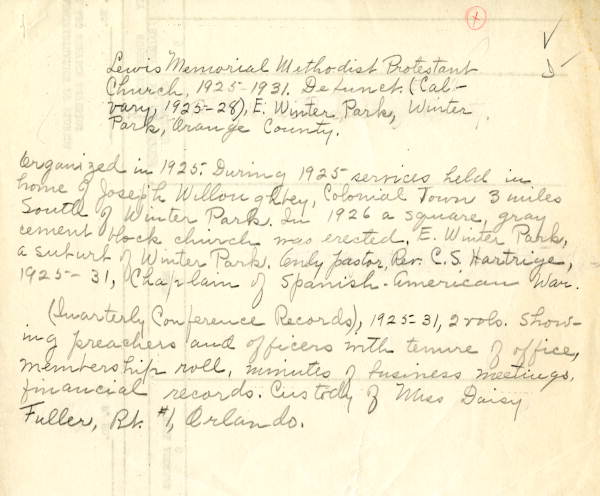 Lewis Memorial Methodist Protestant
Church, 1925-1931. Defunct. (Cal-
vary, 1925-28), E. Winter Park, Winter
Park, Orange County.
Organized in 1925. During 1925 services held in
home of Joseph Willoughbey, Colonial Town 3 miles
South of Winter Park. In 1926 a square, gray
cement block church was erected, E. Winter Park,
a suburb of Winter Park. Only pastor, Rev. C. S. Hartrige,
1925-31, Chaplain of Spanish-American War.
(Quarterly Conference Records), 1925-31, 2 vols. Show-
ing preachers and officers with tenure of office,
membership roll, minutes of business meetings,
financial records. Custody of Miss Daisy
Fuller, Rt. #1, Orlando.